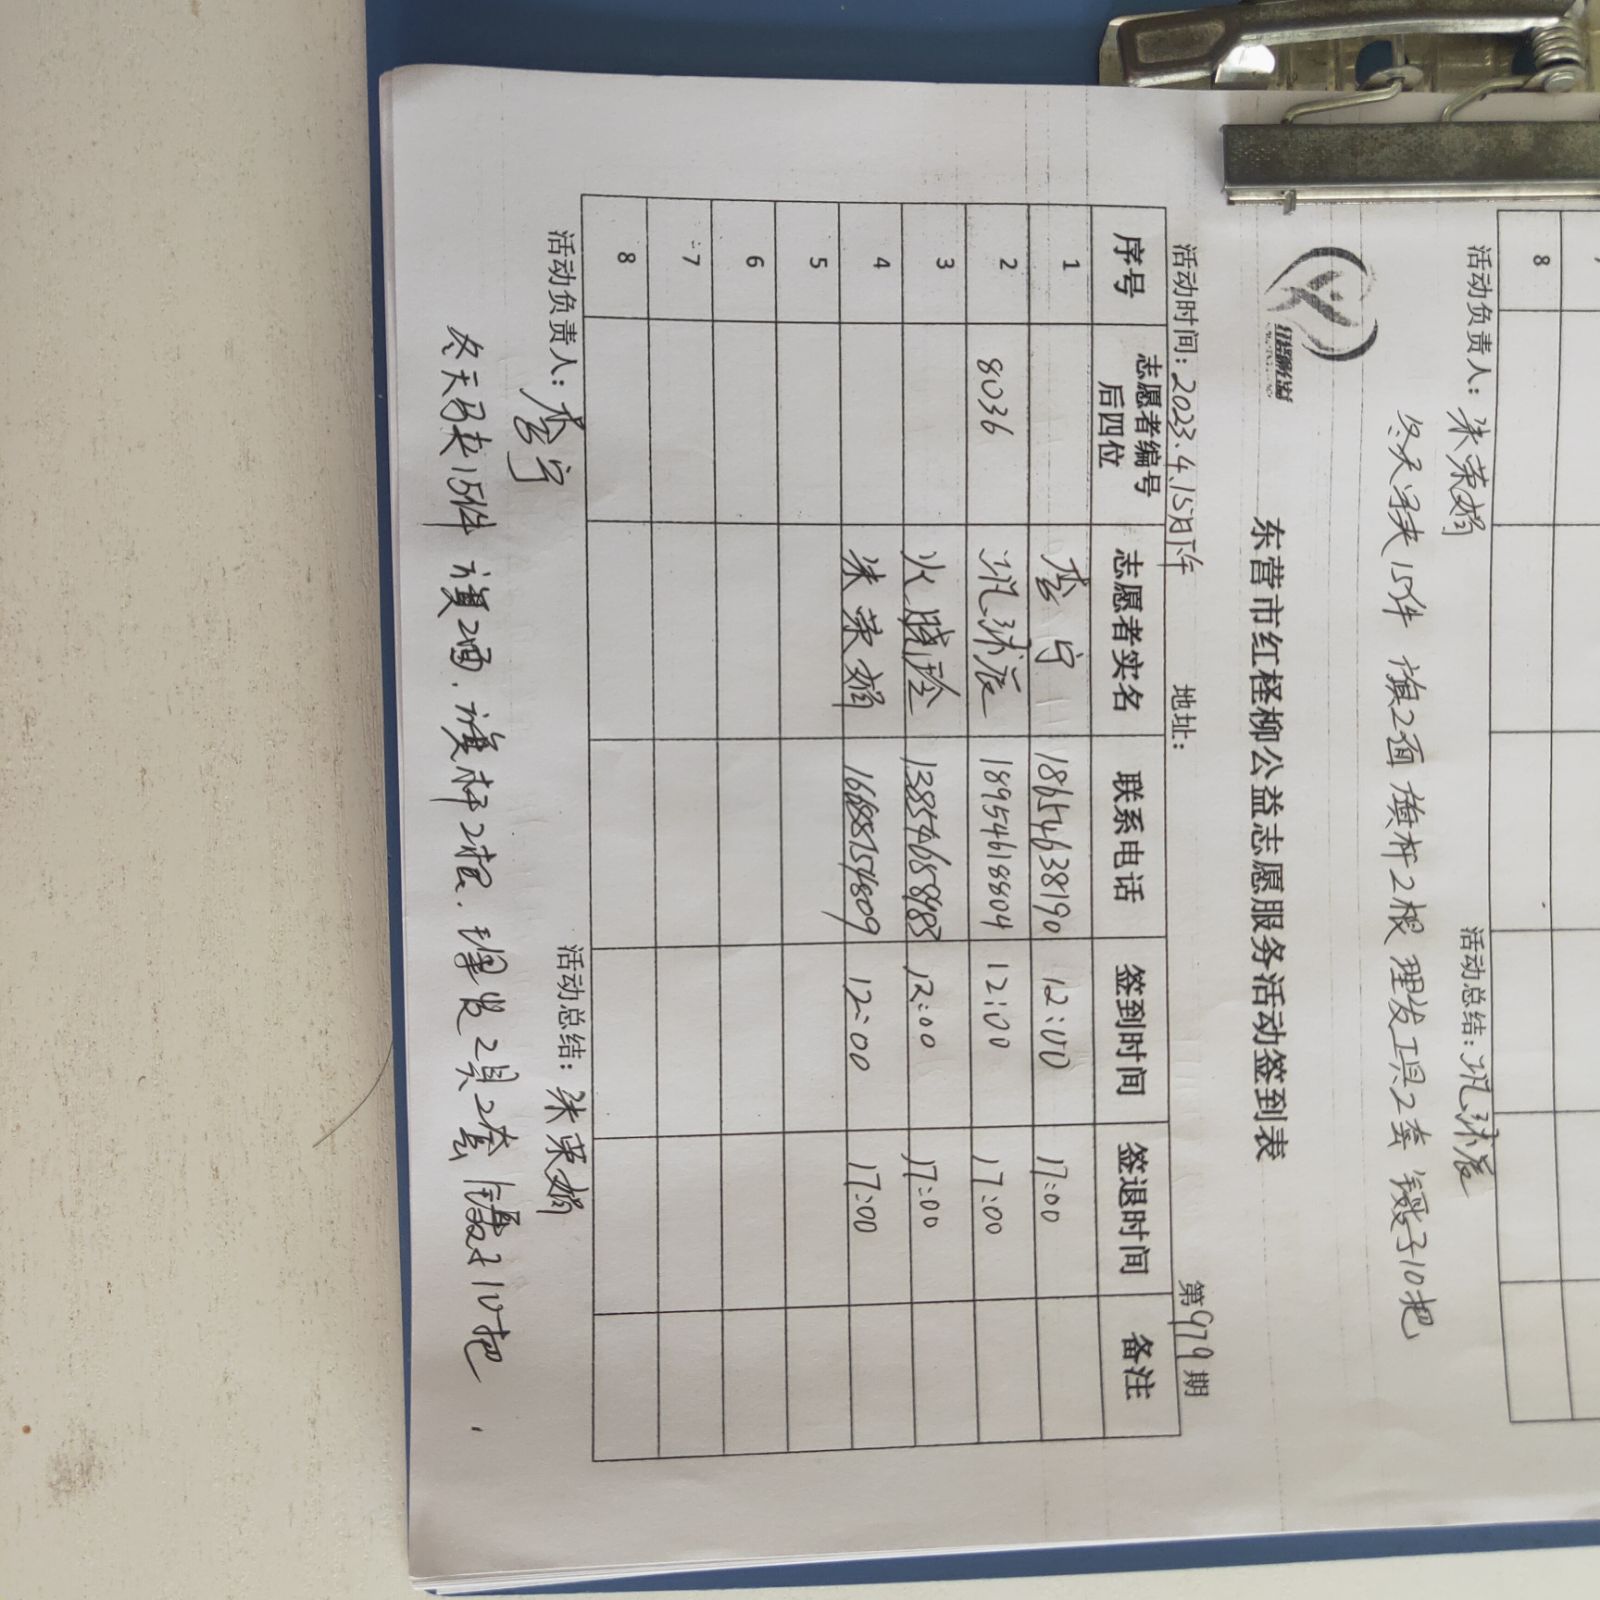 8
活动负责人：朱荣娟 活动总结：巩沭辰
冬天马夹15件 旗2面 旗杆2根 理发工具2套 镊子10把
东营市红柽柳公益志愿服务活动签到表
活动时间：2023.4.15日下午 地址： 第979期
序号 志愿者编号后四位 志愿者实名 联系电话 签到时间 签退时间 备注
1 李宁 18654638190 12:00 17:00
2 8036 巩沭辰 18954618804 12:00 17:00
3 火晓玲 12:00 17:00
4 朱荣娟 12:00 17:00
5
6
7
8
活动负责人：李宁 活动总结：朱荣娟
冬天马夹15件 旗2面，旗杆2根，理发工具2套 镊子10把，